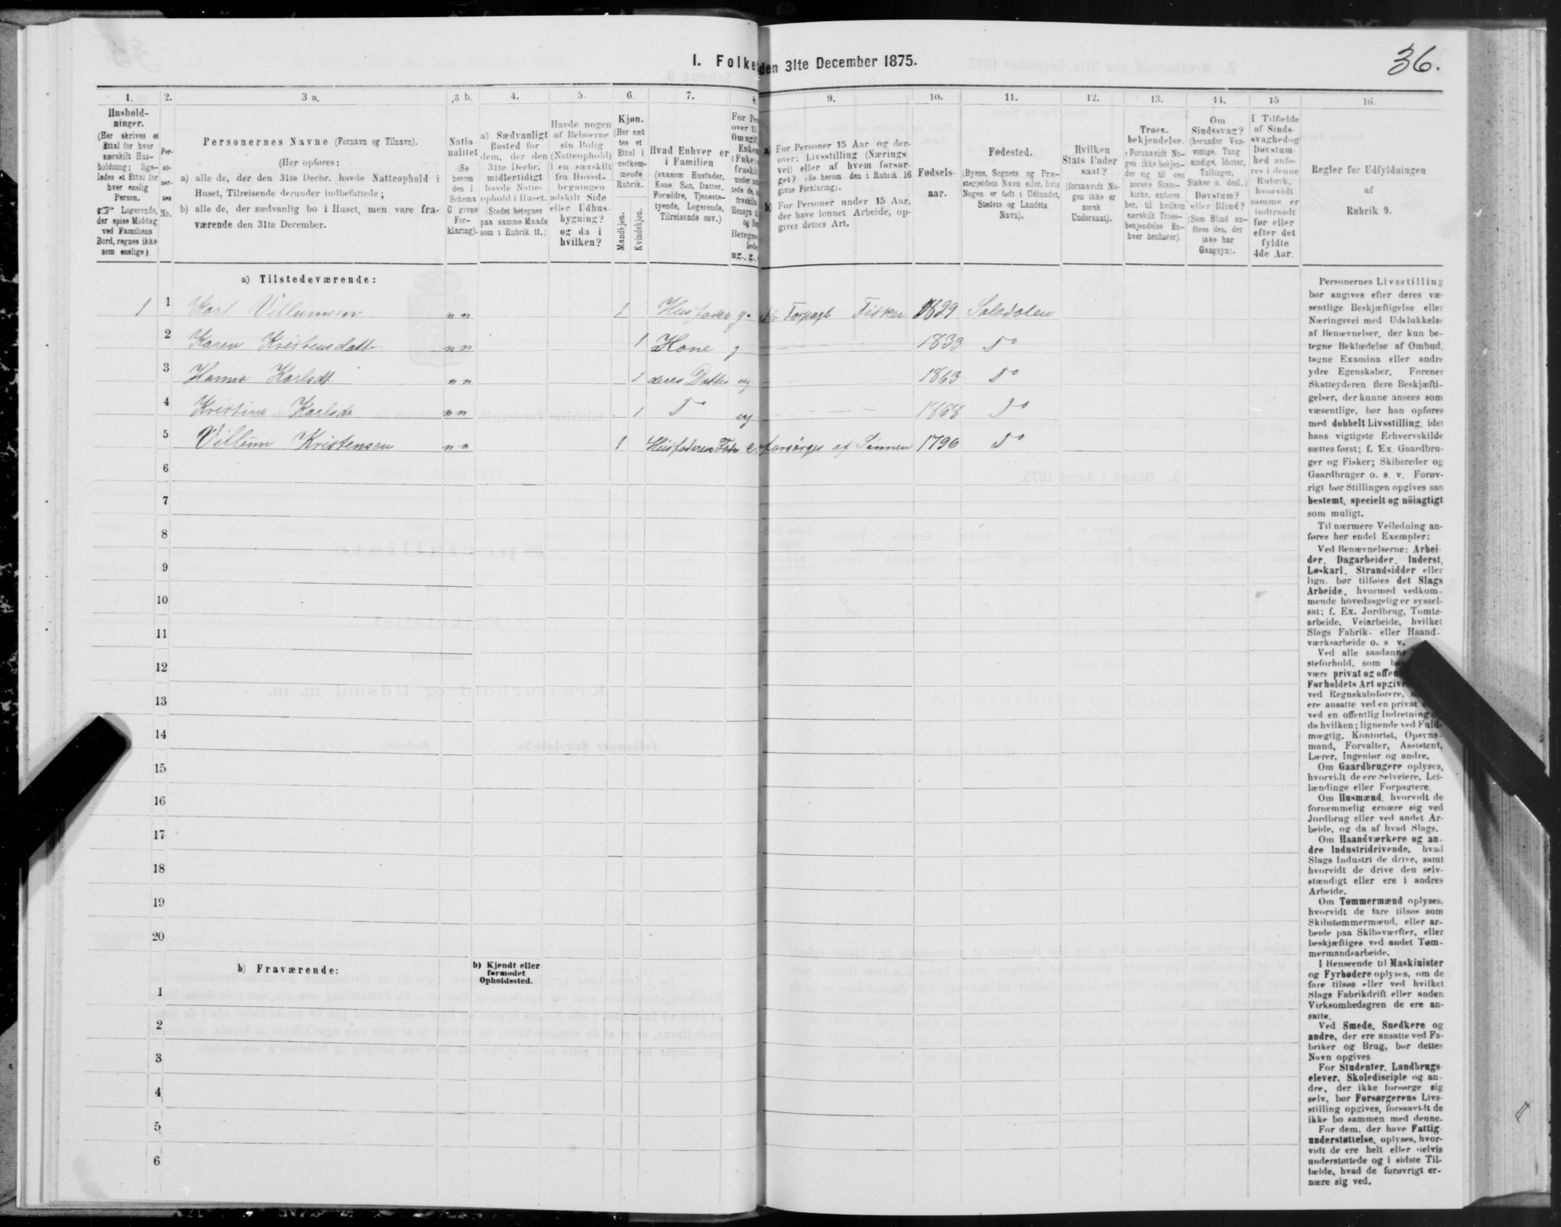 36.
I. Folke den 31te December 1875.
1. 2. 3 a. 3 b. 4. 5. 6. 7. 8. 9. 10. 11. 12. 13. 14. 15 16.
Hushold-
ninger.
(Her skrives et
Ettal for hver
særskilt Hus-
holdning; lige-
ledes et Ettal for
hver enslig
Person.
☞ Logerende,
der spise Middag
ved Familiens
Bord, regnes ikke
som enslige).
Per-
so-
ner-
nes
No.
Personernes Navne (Fornavn og Tilnavn).
(Her opføres:
a) alle de, der den 31te Decbr. havde Natteophold i
Huset, Tilreisende derunder indbefattede;
b) alle de, der sædvanlig bo i Huset, men vare fra-
værende den 31te December.
Natio-
nalitet
(Se
herom
den i
Schema
O givne
For-
klaring).
a) Sædvanligt
Bosted for
dem, der den
31te Decbr.
midlertidigt
havde Natte-
ophold i Huset.
(Stedet betegnes
paa samme Maade
som i Rubrik 11.)
Havde nogen
af Beboerne
sin Bolig
(Natteophold)
i en særskilt
fra Hoved-
bygningen
adskilt Side
eller Udhus-
bygning?
og da i
hvilken?
Kjøn.
(Her sæt-
tes et
Ettal i
vedkom-
mende
Rubrik.
Mandkjøn.
Kvindekjøn.
Hvad Enhver er
i Familien
(saasom Husfader,
Kone, Søn, Datter,
Forældre, Tjeneste-
tyende, Logerende,
Tilreisende osv.)
a) For Personer 15 Aar og der-
over: Livsstilling (Nærings-
vei) eller af hvem forsør-
get? (Se herom den i Rubrik 16
givne Forklaring).
b) For Personer under 15 Aar,
der have lønnet Arbeide, op-
gives dettes Art.
Fødsels-
aar.
Fødested.
(Byens, Sognets og Præ-
stegjeldets Navn eller, hvis
Nogen er født i Udlandet,
Stedets og Landets
Navn).
Hvilken
Stats Under
saat?
(forsaavidt No-
gen ikke er
norsk
Undersaat).
Troes-
bekjendelse.
(Forsaavidt No-
gen ikke bekjen-
der sig til den
norske Stats-
kirke, anføres
her, til hvilken
særskilt Troes-
bekjendelse En-
hver henhører).
Om
Sindssvag?
(herunder Van-
vittige, Tung-
sindige, Idioter,
Tullinger,
Sinker o. desl.)
Døvstum?
eller Blind?
(Som Blind an-
føres den, der
ikke har
Gangsyn).
I Tilfælde
af Sinds-
svaghed og
Døvstum-
hed anfø-
res i denne
Rubrik,
hvorvidt
samme er
indtraadt
før eller
efter det
fyldte
4de Aar.
Regler for Udfyldningen
af
Rubrik 9.
a) Tilstedeværende:
1 1 Karl Villumsen nn 1 Husfader g. Forpagt Fisker 1829 Salsdalen
2 Karen Kristensdatt nn 1 Kone g 1833 Do
3 Hanna Karlsdt nn 1 deres Datter ug 1863 Do
4 Kristine Karlsdt nn 1 Do ug 1868 Do
5 Villum Kristensen nn 1 Husfaderens Fader e. forsørges af Sønnen 1796 Do
6
7
8
9
10
11
12
13
14
15
16
17
18
19
20
b) Fraværende:
b) Kjendt eller
formodet
Opholdssted.
1
2
3
4
5
6
Personernes Livsstilling
bør angives efter deres væ-
sentlige Beskjæftigelse eller
Næringsvei med Udelukkelse
af Benævnelser, der kun be-
tegne Beklædelse af Ombud,
tagne Examina eller andre
ydre Egenskaber. Forener
Skatteyderen flere Beskjæfti-
gelser, der kunne ansees som
væsentlige, bør han opføres
med dobbelt Livsstilling, idet
hans vigtigste Erhvervskilde
sættes først; f. Ex. Gaardbru-
ger og Fisker; Skibsreder og
Gaardbruger o. s. v. Forøv-
rigt bør Stillingen opgives saa
bestemt, specielt og nöiagtigt
som muligt.
Til nærmere Veiledning an-
føres her endel Exempler:
Ved Benævnelserne: Arbei-
der, Dagarbeider, Inderst,
Løskarl, Strandsidder eller
lign. bør tilføies det Slags
Arbeide, hvormed vedkom-
mende hovedsagelig er syssel-
sat; f. Ex. Jordbrug, Tomte-
arbeide, Veiarbeide, hvilket
Slags Fabrik- eller Haand-
værksarbeide o. s. v.
Ved alle saadanne
steforhold, som
være privat og offen
Forholdets Art opgive
ved Regnskabsførere,
ere ansatte ved en privat
ved en offentlig Indretning
da hvilken; lignende ved Fuld-
mægtig, Kontorist, Opsyns-
mand, Forvalter, Assistent,
Lærer, Ingeniør og andre.
Om Gaardbrugere oplyses,
hvorvidt de ere Selveiere, Lei-
lændinge eller Forpagtere.
Om Husmænd, hvorvidt de
fornemmelig ernære sig ved
Jordbrug eller ved andet Ar-
beide, og da af hvad Slags.
Om Haandværkere og an-
dre Industridrivende, hvad
Slags Industri de drive, samt
hvorvidt de drive den selv-
stændigt eller ere i andres
Arbeide.
Om Tømmermænd oplyses,
hvorvidt de fare tilsøs som
Skibstømmermænd, eller ar-
beide paa Skibsværfter, eller
beskjæftiges ved andet Tøm-
mermandsarbeide.
I Henseende til Maskinister
og Fyrbødere oplyses, om de
fare tilsøs eller ved hvilket
Slags Fabrikdrift eller anden
Virksomhedsgren de ere an-
satte.
Ved Smede, Snedkere og
andre, der ere ansatte ved Fa-
briker og Brug, bør dettes
Navn opgives
For Studenter, Landbrugs-
elever, Skoledisciple og an-
dre, der ikke forsørge sig
selv, bør Forsørgerens Livs-
stilling opgives, forsaavidt de
ikke bo sammen med denne.
For dem, der have Fattig-
understøttelse, oplyses, hvor-
vidt de ere helt eller delvis
understøttede og i sidste Til-
fælde, hvad de forøvrigt er-
nære sig ved.